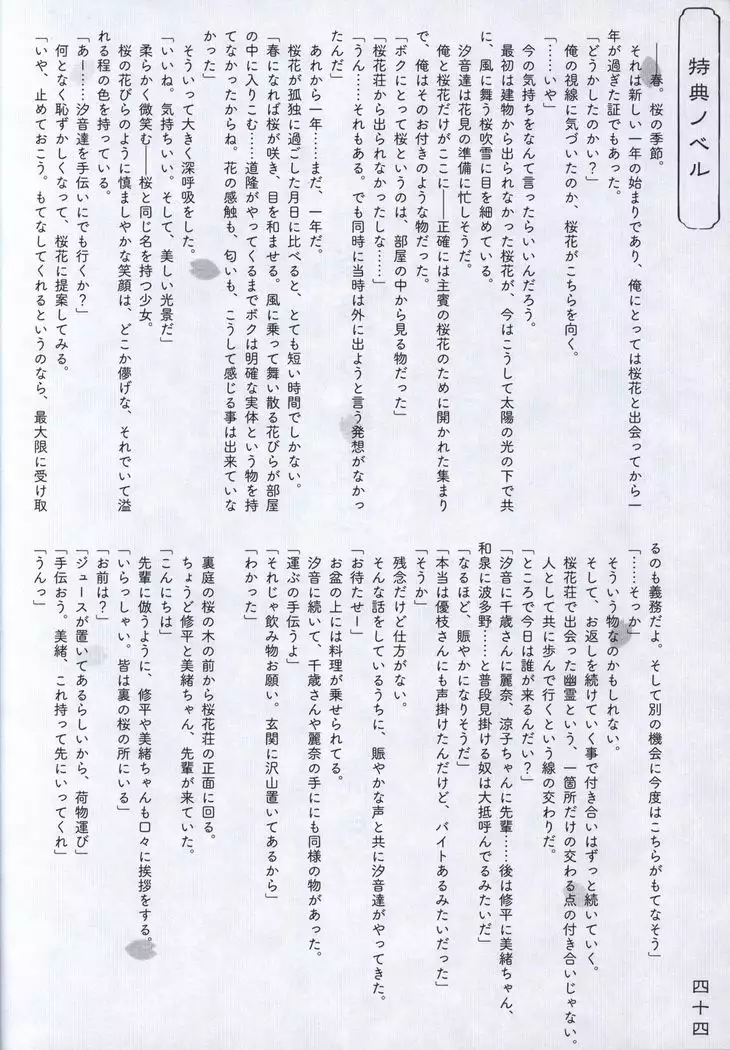 特典ノベル
――春。桜の季節。
それは新しい一年の始まりであり、俺にとっては桜花と出会ってから一
年が過ぎた証でもあった。
「どうかしたのかい?」
俺の視線に気づいたのか、桜花がこちらを向く。
「……いや」
今の気持ちをなんて言ったらいいんだろう。
最初は建物から出られなかった桜花が、今はこうして太陽の光の下で共
に、風に舞う桜吹雪に目を細めている。
汐音達は花見の準備に忙しそうだ。
俺と桜花だけがここに――正確には主賓の桜花のために開かれた集まり
で、俺はそのお付きのような物だった。
「ボクにとって桜というのは、部屋の中から見る物だった」
「桜花荘から出られなかったしな……」
「うん……それもある。でも同時に当時は外に出ようと言う発想がなかっ
たんだ」
あれから一年……まだ、一年だ。
桜花が孤独に過ごした月日に比べると、とても短い時間でしかない。
「春になれば桜が咲き、目を和ませる。風に乗って舞い散る花びらが部屋
の中に入りこむ……道隆がやってくるまでボクは明確な実体という物を持
てなかったからね。花の感触も、匂いも、こうして感じる事は出来ていな
かった」
そういって大きく深呼吸をした。
「いいね。気持ちいい。そして、美しい光景だ」
柔らかく微笑む――桜と同じ名を持つ少女。
桜の花びらのように慎ましやかな笑顔は、どこか儚げな、それでいて溢
れる程の色を持っている。
「あー……汐音達を手伝いにでも行くか?」
何となく恥ずかしくなって、桜花に提案してみる。
「いや、止めておこう。もてなしてくれるというのなら、最大限に受け取
るのも義務だよ。そして別の機会に今度はこちらがもてなそう」
「……そっか」
そういう物なのかもしれない。
そして、お返しを続けていく事で付き合いはずっと続いていく。
桜花荘で出会った幽霊という、一箇所だけの交わる点の付き合いじゃない。
人として共に歩んで行くという線の交わりだ。
「ところで今日は誰が来るんだい?」
「汐音に千歳さんに麗奈、涼子ちゃんに先輩……後は修平に美緒ちゃん、
和泉に波多野……と普段見掛ける奴は大抵呼んでるみたいだ」
「なるほど、賑やかになりそうだ」
「本当は優枝さんにも声掛けたんだけど、バイトあるみたいだった」
「そうか」
残念だけど仕方がない。
そんな話をしているうちに、賑やかな声と共に汐音達がやってきた。
「お待たせー」
お盆の上には料理が乗せられてる。
汐音に続いて、千歳さんや麗奈の手ににも同様の物があった。
「運ぶの手伝うよ」
「それじゃ飲み物お願い。玄関に沢山置いてあるから」
「わかった」
裏庭の桜の木の前から桜花荘の正面に回る。
ちょうど修平と美緒ちゃん、先輩が来ていた。
「こんにちは」
先輩に倣うように、修平や美緒ちゃんも口々に挨拶をする。
「いらっしゃい。皆は裏の桜の所にいる」
「お前は?」
「ジュースが置いてあるらしいから、荷物運び」
「手伝おう。美緒、これ持って先にいってくれ」
「うんっ」
四十四